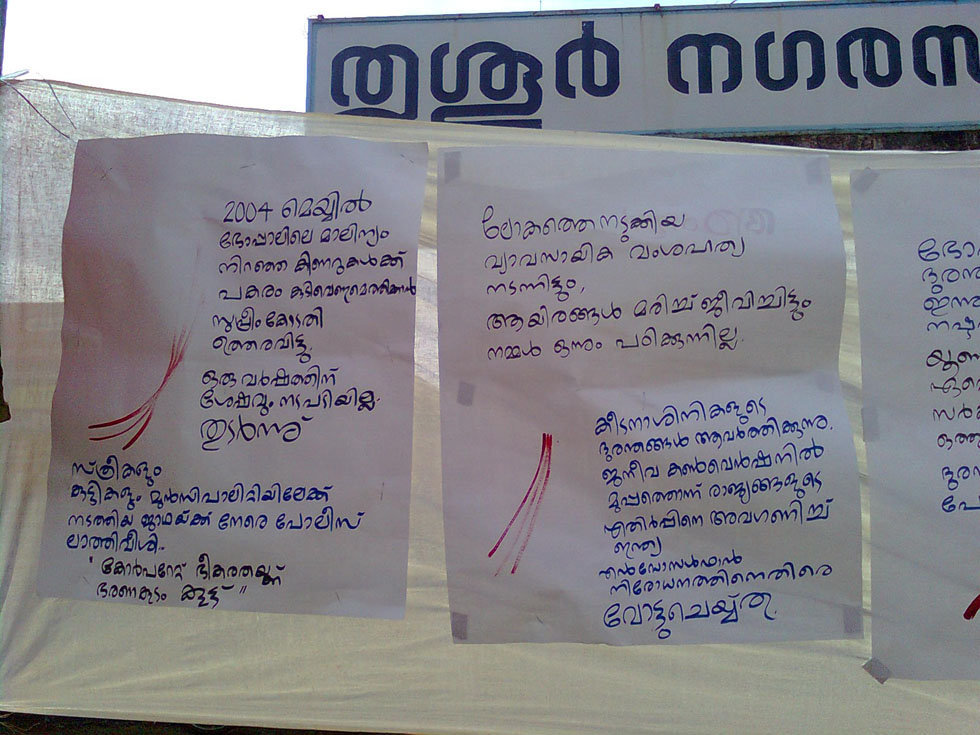 തൃശൂർ നഗരസ
2004 മെയ്യിൽ
ഭോപ്പാലിലെ മാലിന്യം
നിറഞ്ഞ കിണറുകൾക്ക്
പകരം കുടിവെള്ളമെത്തിക്കാൻ
സുപ്രീം കോടതി
ഉത്തരവിട്ടു.
ഒരു വർഷത്തിന്
ശേഷവും നടപടിയില്ല.
തുടർന്ന്
സ്ത്രീകളും
കുട്ടികളും മുൻസിപാലിറ്റിയിലേക്ക്
നടത്തിയ ജാഥയ്ക്ക് നേരെ പോലീസ്
ലാത്തിവീശി.
"കോർപറേറ്റ് ഭീകരതയ്ക്ക്
ഭരണകൂടം കൂട്ട്"
ലോകത്തെ നടുക്കിയ
വ്യാവസായിക വംശഹത്യ
നടന്നിട്ടും,
ആയിരങ്ങൾ മരിച്ച് ജീവിച്ചിട്ടും
നമ്മൾ ഒന്നും പഠിക്കുന്നില്ല.
കീടനാശിനികളുടെ
ദുരന്തങ്ങൾ ആവർത്തിക്കുന്നു.
ജനീവ കൺവെൻഷനിൽ
മുപ്പത്തൊന്ന് രാജ്യങ്ങളുടെ
എതിർപ്പിനെ അവഗണിച്ച്
ഇന്ത്യ
എൻഡോസൾഫാൻ
നിരോധനത്തിനെതിരെ
വോട്ടുചെയ്തു.
ഭോ
ദുരന്ത
ഇന്ന
നഷ്ട
യൂണ
ഏറ്റെ
സർക
ഒത്തു
ദുരന
പേ